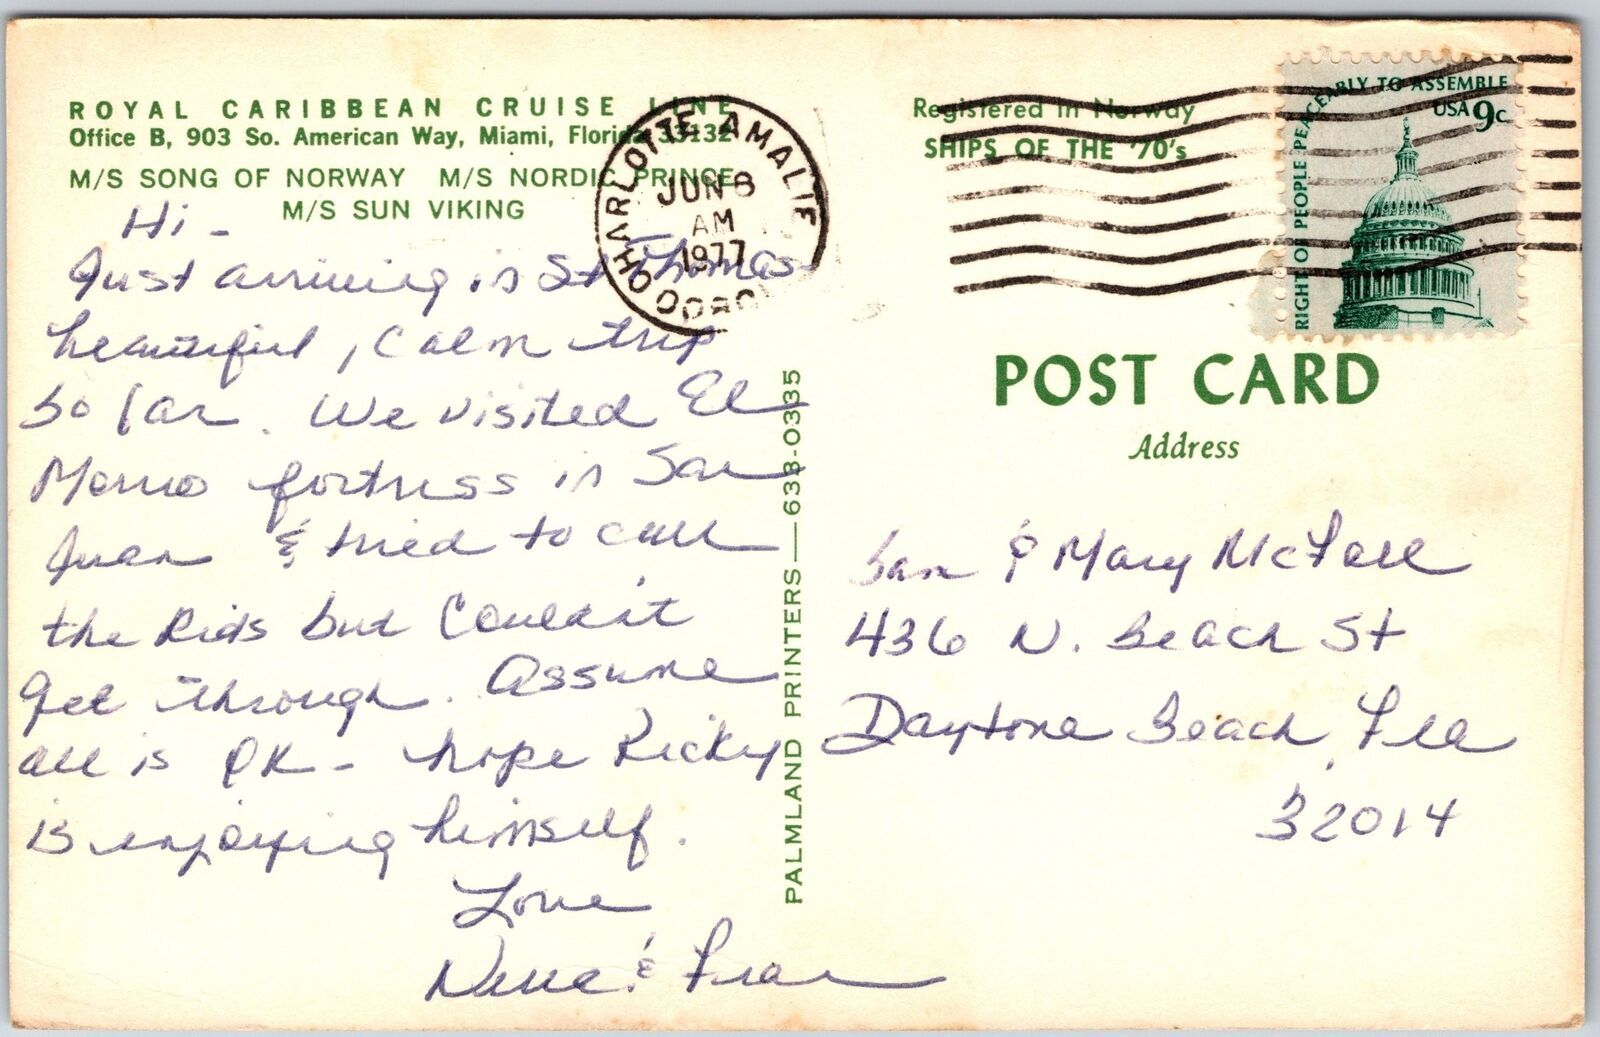 ROYAL CARIBBEAN CRUISE LINE
Office B, 903 So. American Way, Miami, Florida 33132
M/S SONG OF NORWAY M/S NORDIC PRINCE
M/S SUN VIKING
Hi -
Just arriving in St Thomas -
beautiful, calm trip
so far. We visited El
Morro fortress in San
Juan & tried to call
the kids but couldn't
get through. Assume
all is OK - hope Ricky
is enjoying himself.
Love
& Fran
PALMLAND PRINTERS—638-0335
CHARLOTTE AMALIE
JUN 8
AM
1977
Registered in Norway
SHIPS OF THE '70's
RIGHT OF PEOPLE PEACEABLY TO ASSEMBLE
USA 9c
POST CARD
Address
Sam & Mary McFall
436 N. Beach St
Daytona Beach, Fla
32014